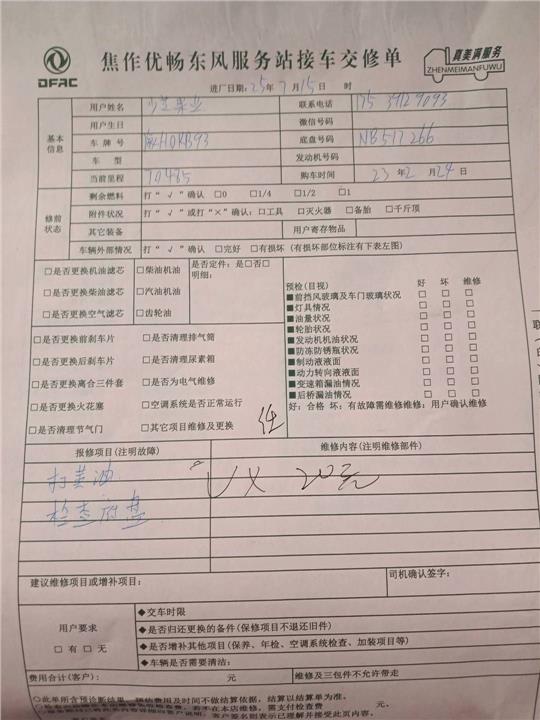 DFAC
焦作优畅东风服务站接车交修单
真美满服务
ZHENMEIMANFUWU
进厂日期：25年 7月15日 时
基本信息
用户姓名 联系电话
用户生日 微信号码
车牌号 底盘号码 NB517266
车型 发动机号码
当前里程 70485 购车时间 23年2月24日
修前状态
剩余燃料 打“√”确认 □0 □1/4 □1/2 □1
附件状况 打“√”或打“×”确认：□工具 □灭火器 □备胎 □千斤顶
其它装备 用户寄存物品
车辆外部情况 打“√”确认 □完好 □有损坏（有损坏部位标注有下表左图）
□是否更换机油滤芯 □柴油机油 是否定件：是□否□
明细：
□是否更换柴油滤芯 □汽油机油
□是否更换空气滤芯 □齿轮油
□是否更换前刹车片 □是否清理排气筒
□是否更换后刹车片 □是否清理尿素箱
□是否更换离合三件套 □是否为电气维修
□是否更换火花塞 □空调系统是否正常运行
□是否清理节气门 □其它项目维修及更换
预检（目视） 好 坏 维修
■前挡风玻璃及车门玻璃状况 □ □ □
■灯具情况 □ □ □
■油量状况 □ □ □
■轮胎状况 □ □ □
■发动机机油状况 □ □ □
■防冻防锈瓶状况 □ □ □
■制动液液面 □ □ □
■动力转向液液面 □ □ □
■变速箱漏油情况 □ □ □
■后桥漏油情况 □ □ □
好：合格 坏：有故障需维修维修：用户确认维修
报修项目（注明故障） 维修内容（注明维修部件）
打黄油 20元
检查底盘
建议维修项目或增补项目： 司机确认签字：
用户要求
□有 □无
◆交车时限
◆是否归还更换的备件（保修项目不退还旧件）
◆是否增补其他项目（保养、年检、空调系统检查、加装项目等）
◆车辆是否需要清洁：
费用合计（客户）： 元 维修及三包件不允许带走
◇此单所含预诊断结果、预估费用及时间不做结算依据，结算以结算单为准。